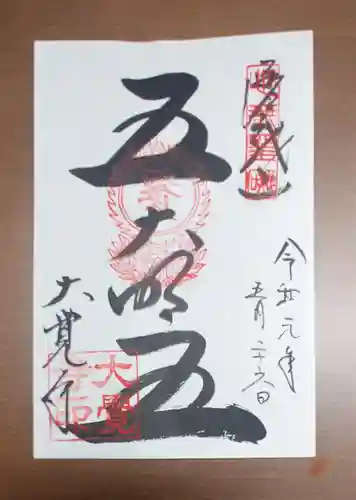 嵯峨山
五大明王
令和元年
五月二十六日
大覚寺
大覺寺印